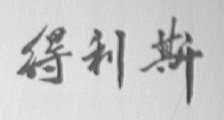 得利斯